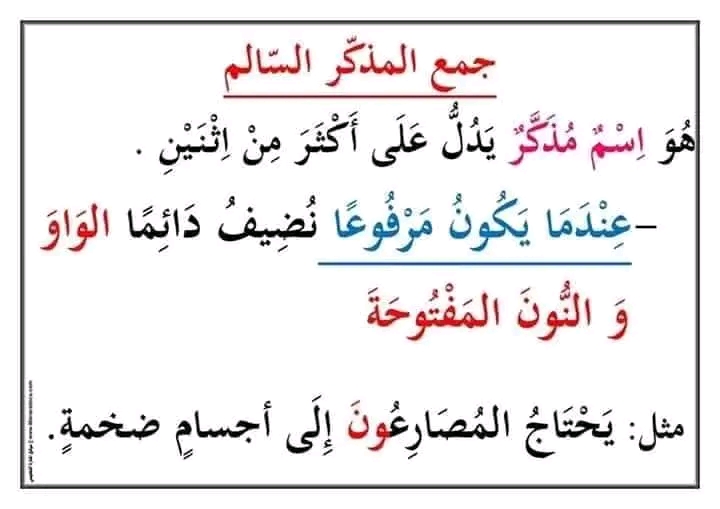 جمع المذكّر السّالم
هُوَ اِسْمٌ مُذَكَّرٌ يَدُلُّ عَلَى أَكْثَرَ مِنْ اِثْنَيْنِ .
–عِنْدَمَا يَكُونُ مَرْفُوعًا نُضِيفُ دَائِمًا الوَاوَ
وَ النُّونَ المَفْتُوحَةَ
مثل: يَحْتَاجُ المُصَارِعُونَ إِلَى أجسامٍ ضخمةٍ.